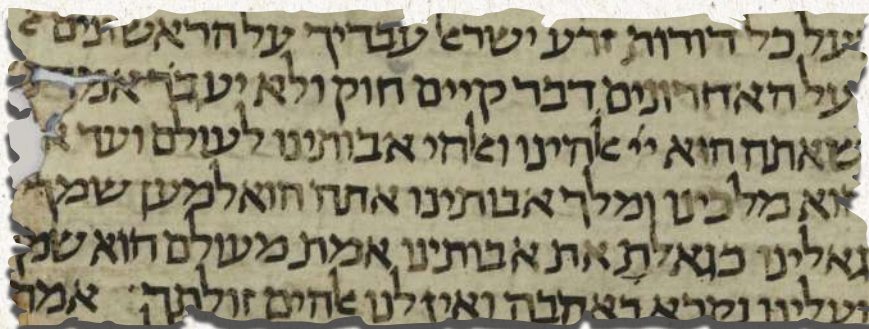 ועל כל דורות זרע ישראל עבדיך על הראשונים
על האחרונים דבר קיים חוק ולא יעבר אמת
שאתה הוא יי אלהינו ואלהי אבותינו לעולם ועד
הוא מלכינו ומלך אבותינו אתה הוא למען שמך
גאלינו כגאלת את אבותינו אמת מעולם הוא שמך
ועלינו נקרא באהבה ואין לנו אלהים זולתך אמת